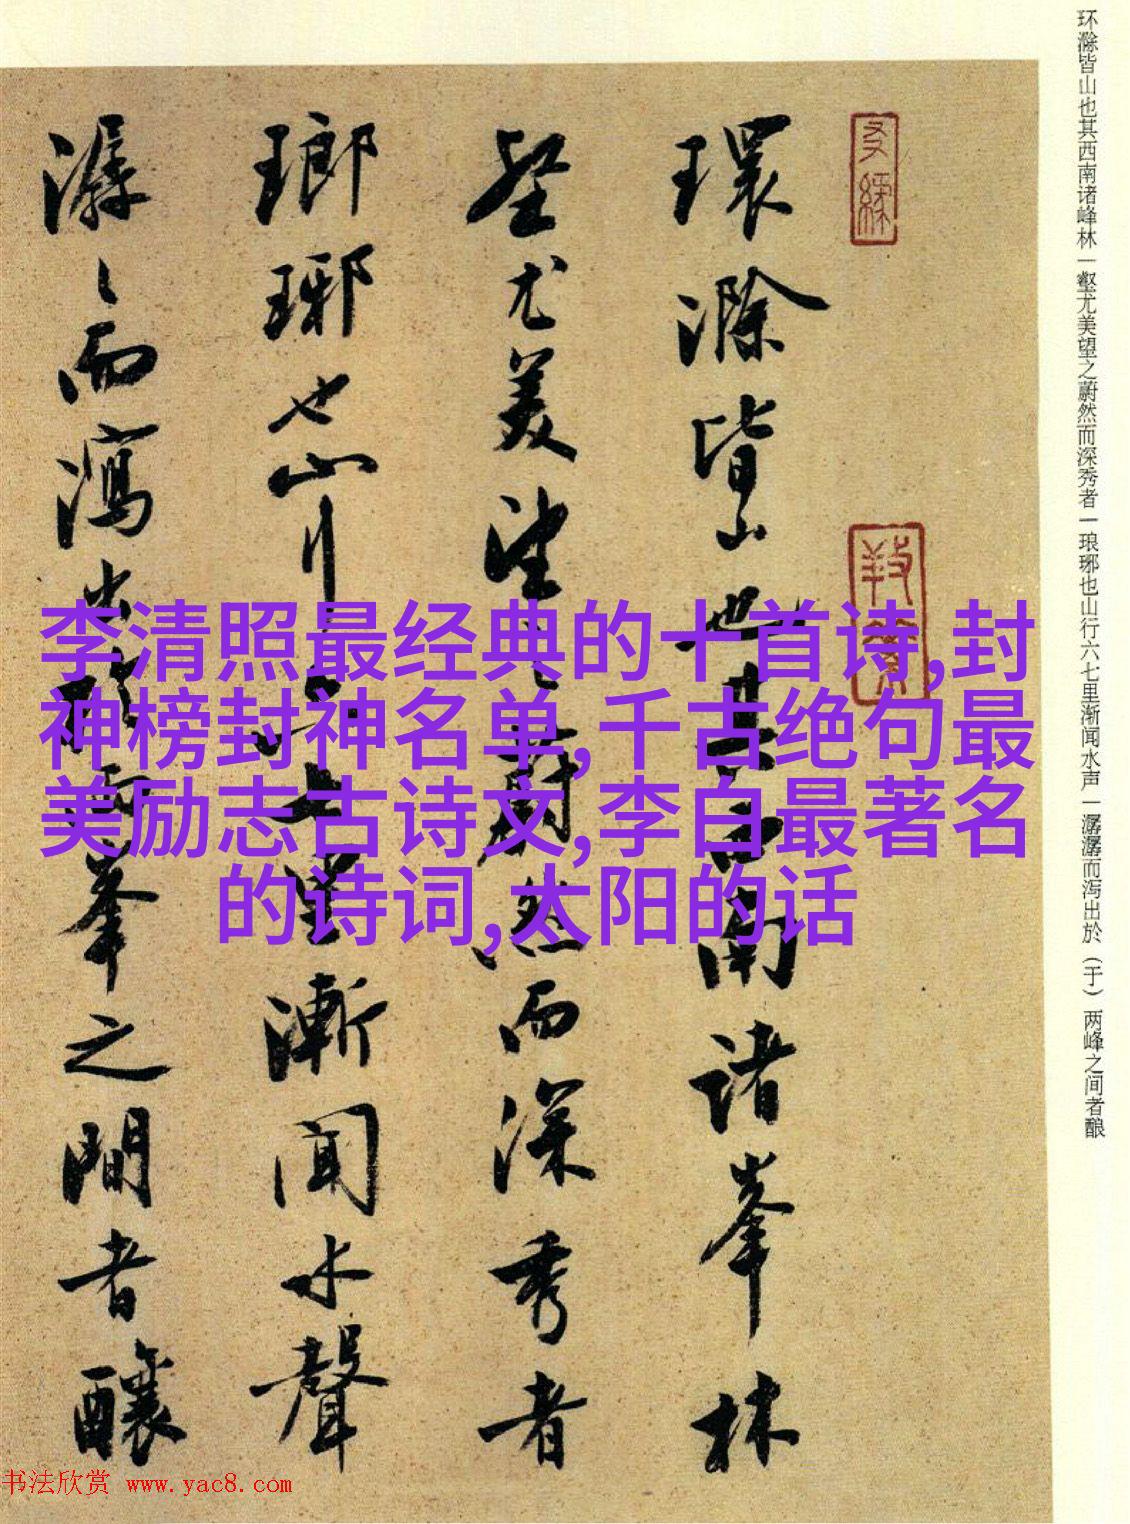 环滁皆山也其西南诸峰林一壑尤美望之蔚然而深秀者一琅琊也山行六七里渐闻水声一潺潺而泻出於（于）两峰之间者酿
環滁皆山也其西南諸峯林
壑尤美望之蔚然而深秀者
瑯琊也山行六七里漸聞水聲
潺〻而瀉出於兩峯之間者釀
李清照最经典的十首诗,封
神榜封神名单,千古绝句最
美励志古诗文,李白最著名
的诗词,太阳的话
书法欣赏 www.yac8.com